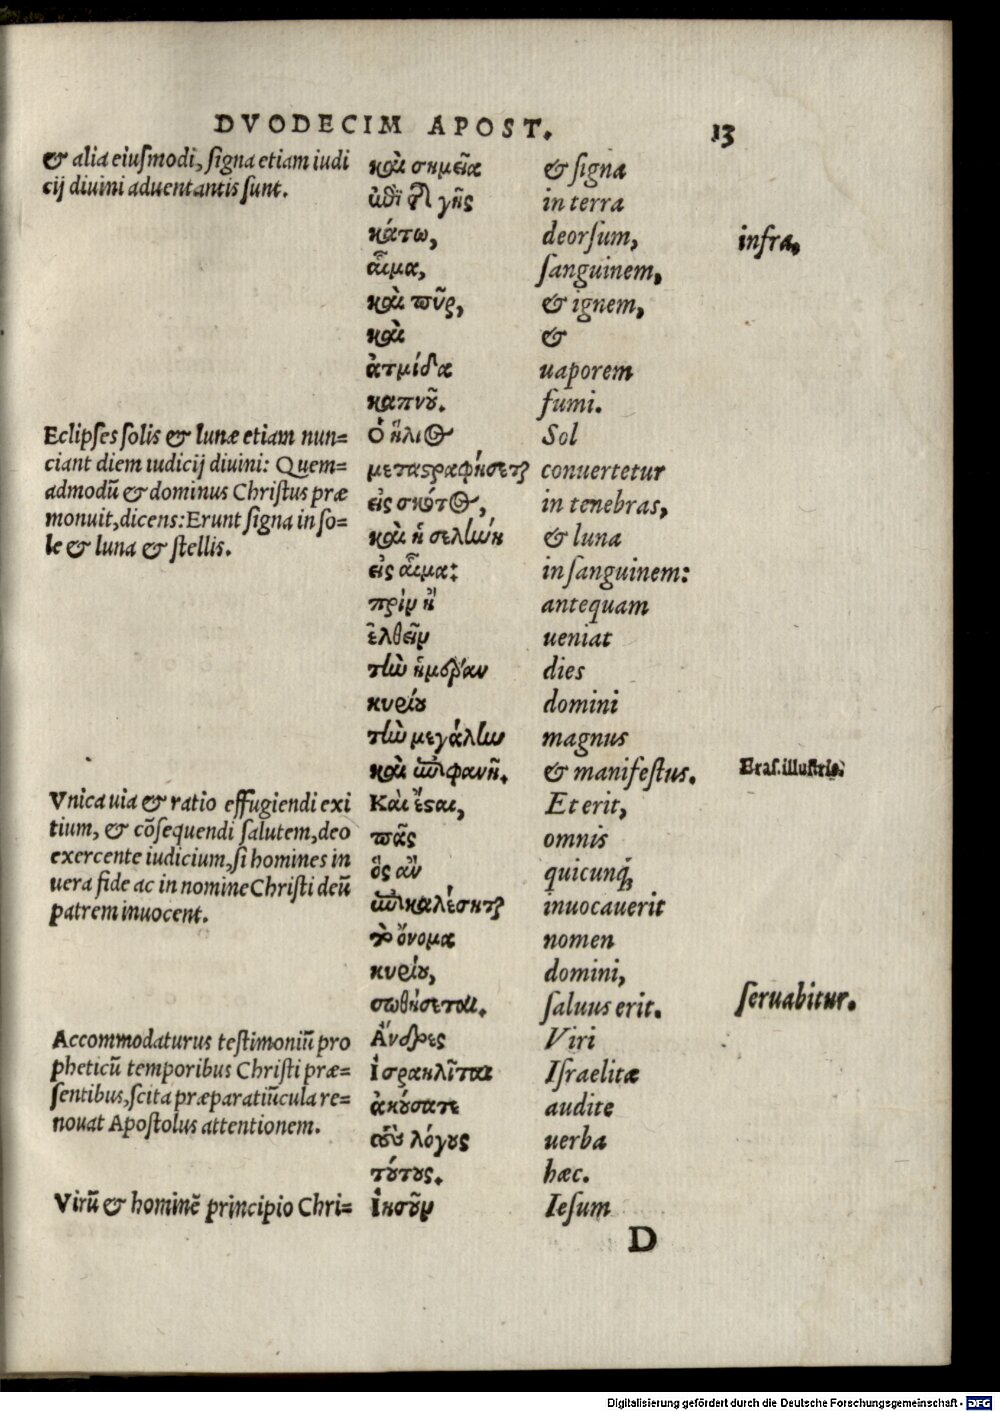 DVODECIM APOST. 13
& alia eiuſmodi, ſigna etiam iudi
cij diuini aduentantis ſunt.
καὶ σημεῖα & ſigna
ἐπὶ τῆς γῆς in terra
κάτω, deorſum, infra,
αἷμα, ſanguinem,
καὶ πῦρ, & ignem,
καὶ &
ἀτμίδα uaporem
καπνοῦ. fumi.
Eclipſes ſolis & lunæ etiam nun=
ciant diem iudicij diuini: Quem=
admodū & dominus Chriſtus præ
monuit, dicens: Erunt ſigna in ſo=
le & luna & ſtellis.
Ὁ ἥλιος Sol
μεταστραφήσεται conuertetur
εἰς σκότος, in tenebras,
καὶ ἡ σελήνη & luna
εἰς αἷμα: in ſanguinem:
πρὶν ἢ antequam
ἐλθεῖν ueniat
τὴν ἡμέραν dies
κυρίου domini
τὴν μεγάλην magnus
καὶ ἐπιφανῆ. & manifeſtus. Eraſ. illuſtris.
Vnica uia & ratio effugiendi exi
tium, & cōſequendi ſalutem, deo
exercente iudicium, ſi homines in
uera fide ac in nomine Chriſti deū
patrem inuocent.
Καὶ ἔσαι, Et erit,
πᾶς omnis
ὃς ἂν quicunq́;
ἐπικαλέσηται inuocauerit
τὸ ὄνομα nomen
κυρίου, domini,
σωθήσεται. ſaluus erit. ſeruabitur.
Accommodaturus teſtimoniū pro
pheticū temporibus Chriſti præ=
ſentibus, ſcita præparatiūcula re=
nouat Apoſtolus attentionem.
Ἄνδρες Viri
Ἰσραηλῖται Iſraelitæ
ἀκούσατε audite
τοὺς λόγους uerba
τούτους. hæc.
Virū & hominē principio Chri=
Ἰησοῦν Ieſum
D
Digitalisierung gefördert durch die Deutsche Forschungsgemeinschaft - DFG